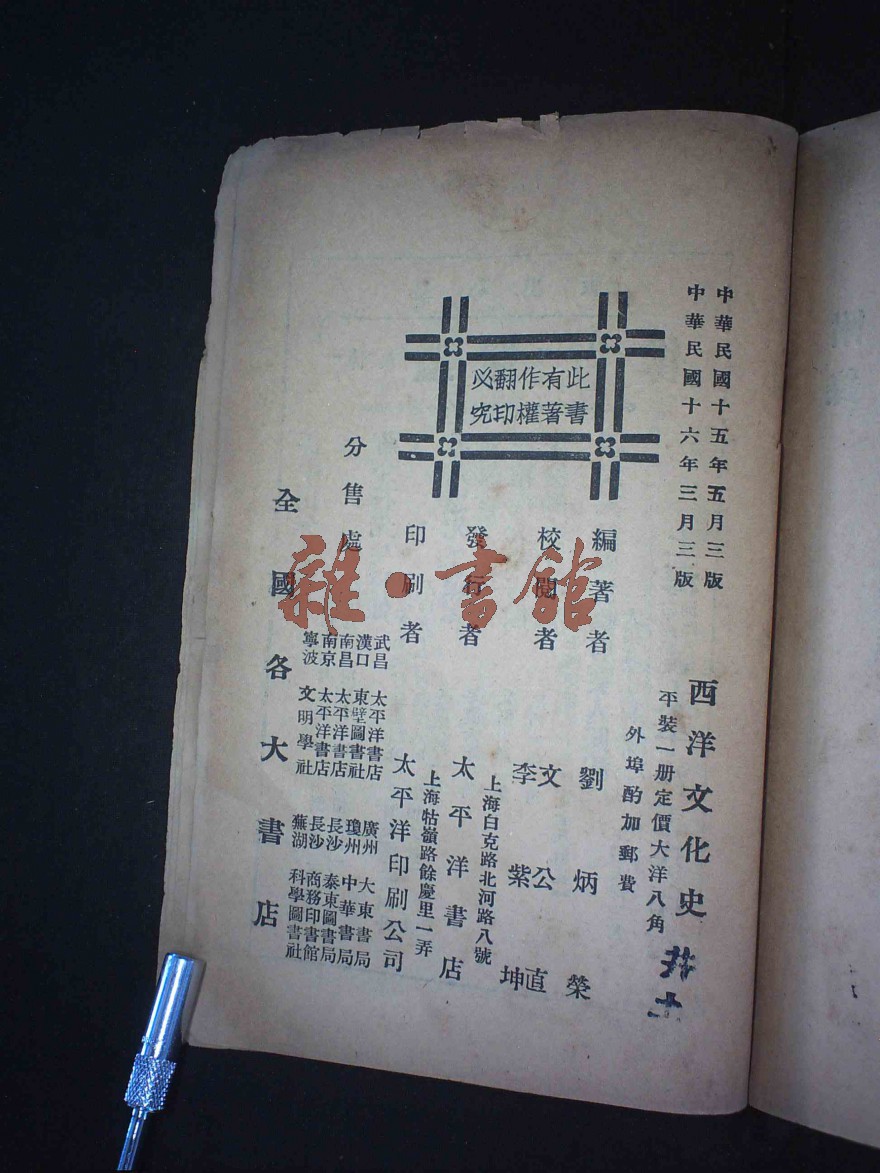 中華民國十五年五月三版
中華民國十六年三月三版
西洋文化史
平裝一册定價大洋八角
外埠酌加郵費
此書
有著
作權
翻印
必究
編著者 劉炳榮
校閱者 文公直
李紫坤
上海白克路北河路八號
發行者 太平洋書店
上海牯嶺路餘慶里一弄
印刷者 太平洋印刷公司
分售處
武昌 太平洋書店 廣州 大東書局
漢口 東壁圖書社 瓊州 中華書局
南昌 太平洋書店 長沙 泰東圖書局
南京 太平洋書店 長沙 商務印書館
寧波 文明學社 蕪湖 科學圖書社
全國各大書店
雜·書館